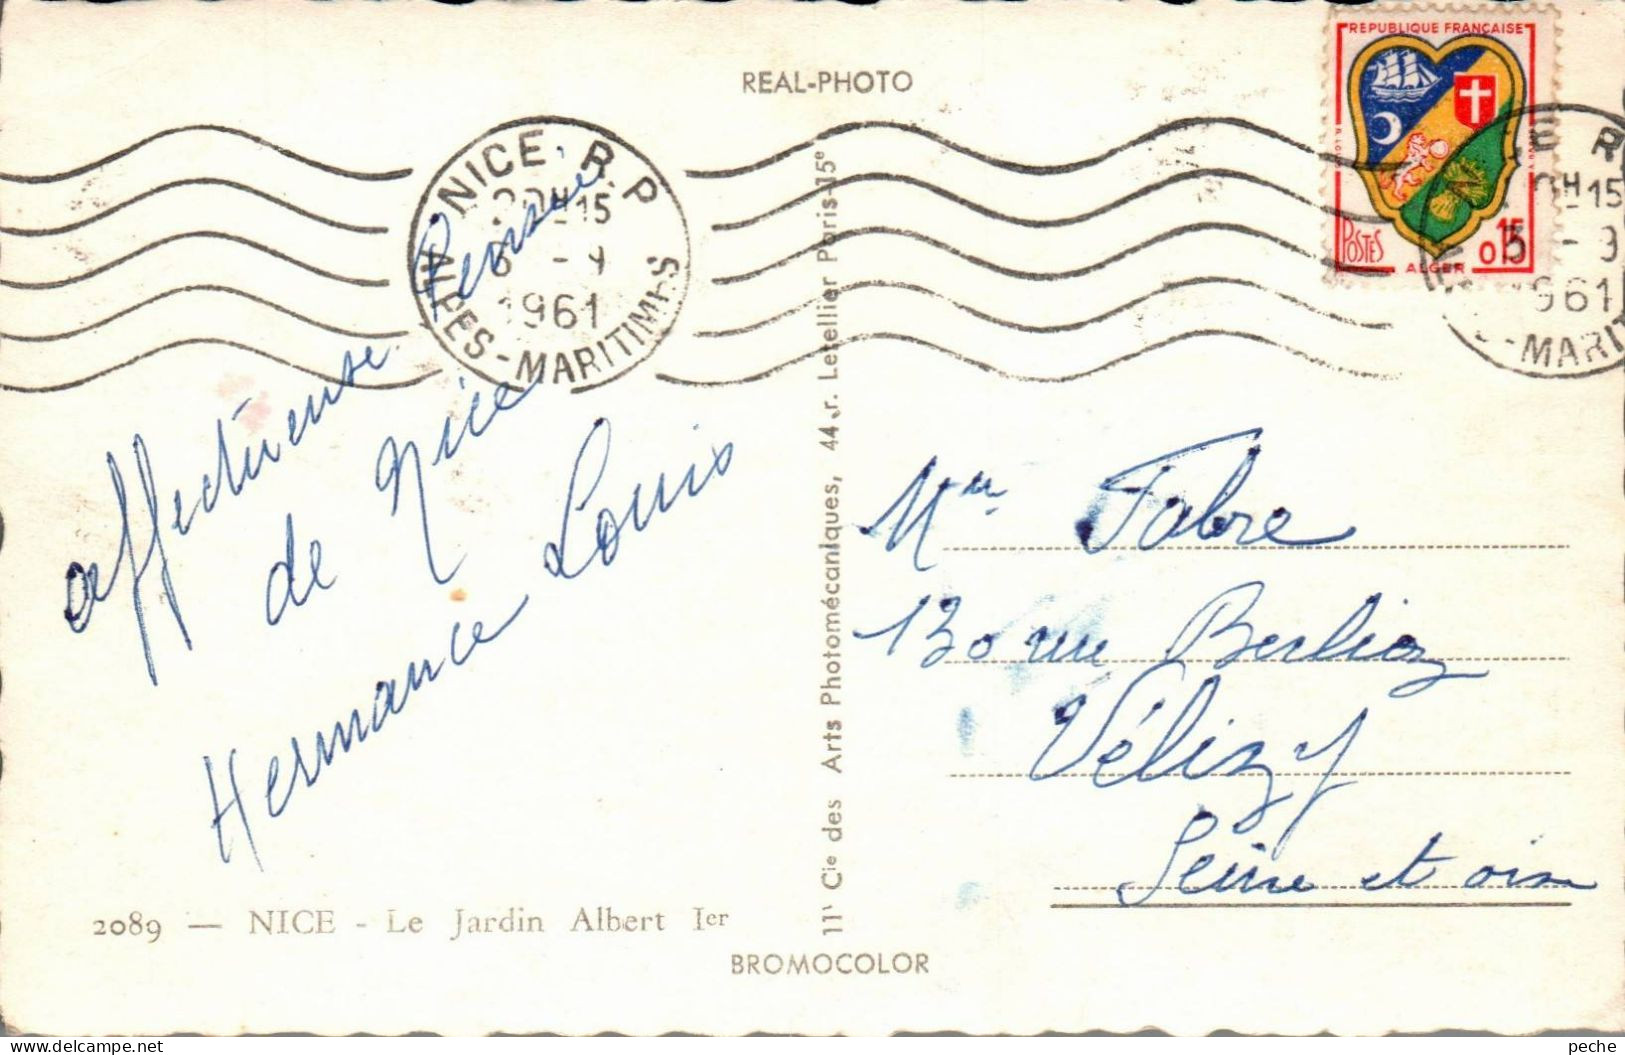 REAL-PHOTO
REPUBLIQUE FRANÇAISE
POSTES
0,15
ALGER
NICE R.P
20H15
6 - 9
1961
ALPES-MARITIMES
E R
H15
- 9
1961
-MARIT
affectueuse Pensée
de Nice
Hermance Louis
Mme Fabre
130 rue Berlioz
Vélizy
Seine et oise
11, Cie des Arts Photomécaniques, 44, r. Letellier Paris-15e
2089 — NICE - Le Jardin Albert Ier
BROMOCOLOR
peche